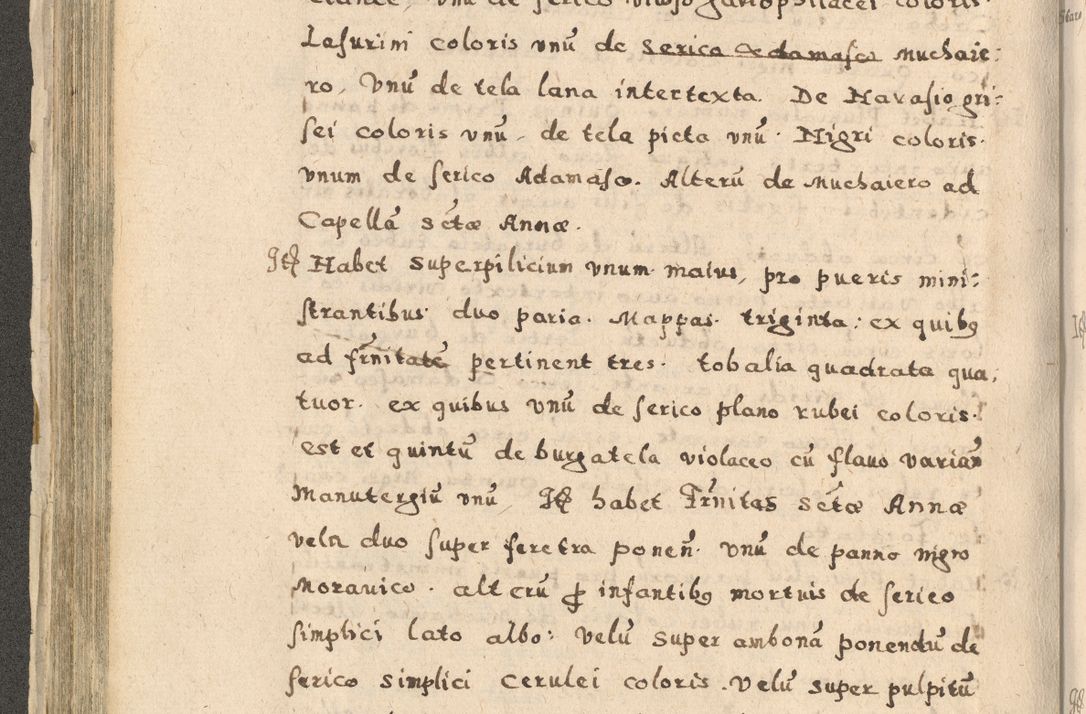 vnũ de serico coloris
Lasurini coloris vnũ de serica Adamasco Muchaie:
ro, Vnũ de tela lana intertexta. De Harasio gri:
sei coloris vnũ, de tela picta vnũ. Nigri coloris.
vnum de serico Adamasco. Alterũ de Muchaiero ad
Capellã sctæ Annæ.
Itẽ Habet superpilicium vnum maius, pro pueris mini:
strantibus duo paria. Mappas triginta: ex quibꝫ
ad frnitatẽ pertinent tres. tobalia quadrata qua:
tuor. ex quibus vnũ de serico plano rubei coloris.
est et quintũ de burgatela violaceo cũ flauo varian̄
Manutergiũ vnũ, Itẽ habet Frnitas sctæ Annæ
vela duo super feretra ponen̄. vnũ de panno nigro
Morauico. alterũ ꝓ infantibꝫ mortuis de serico
simplici lato albo: velũ super ambonã ponendũ de
serico simplici cerulei coloris. velũ super pulpitũ